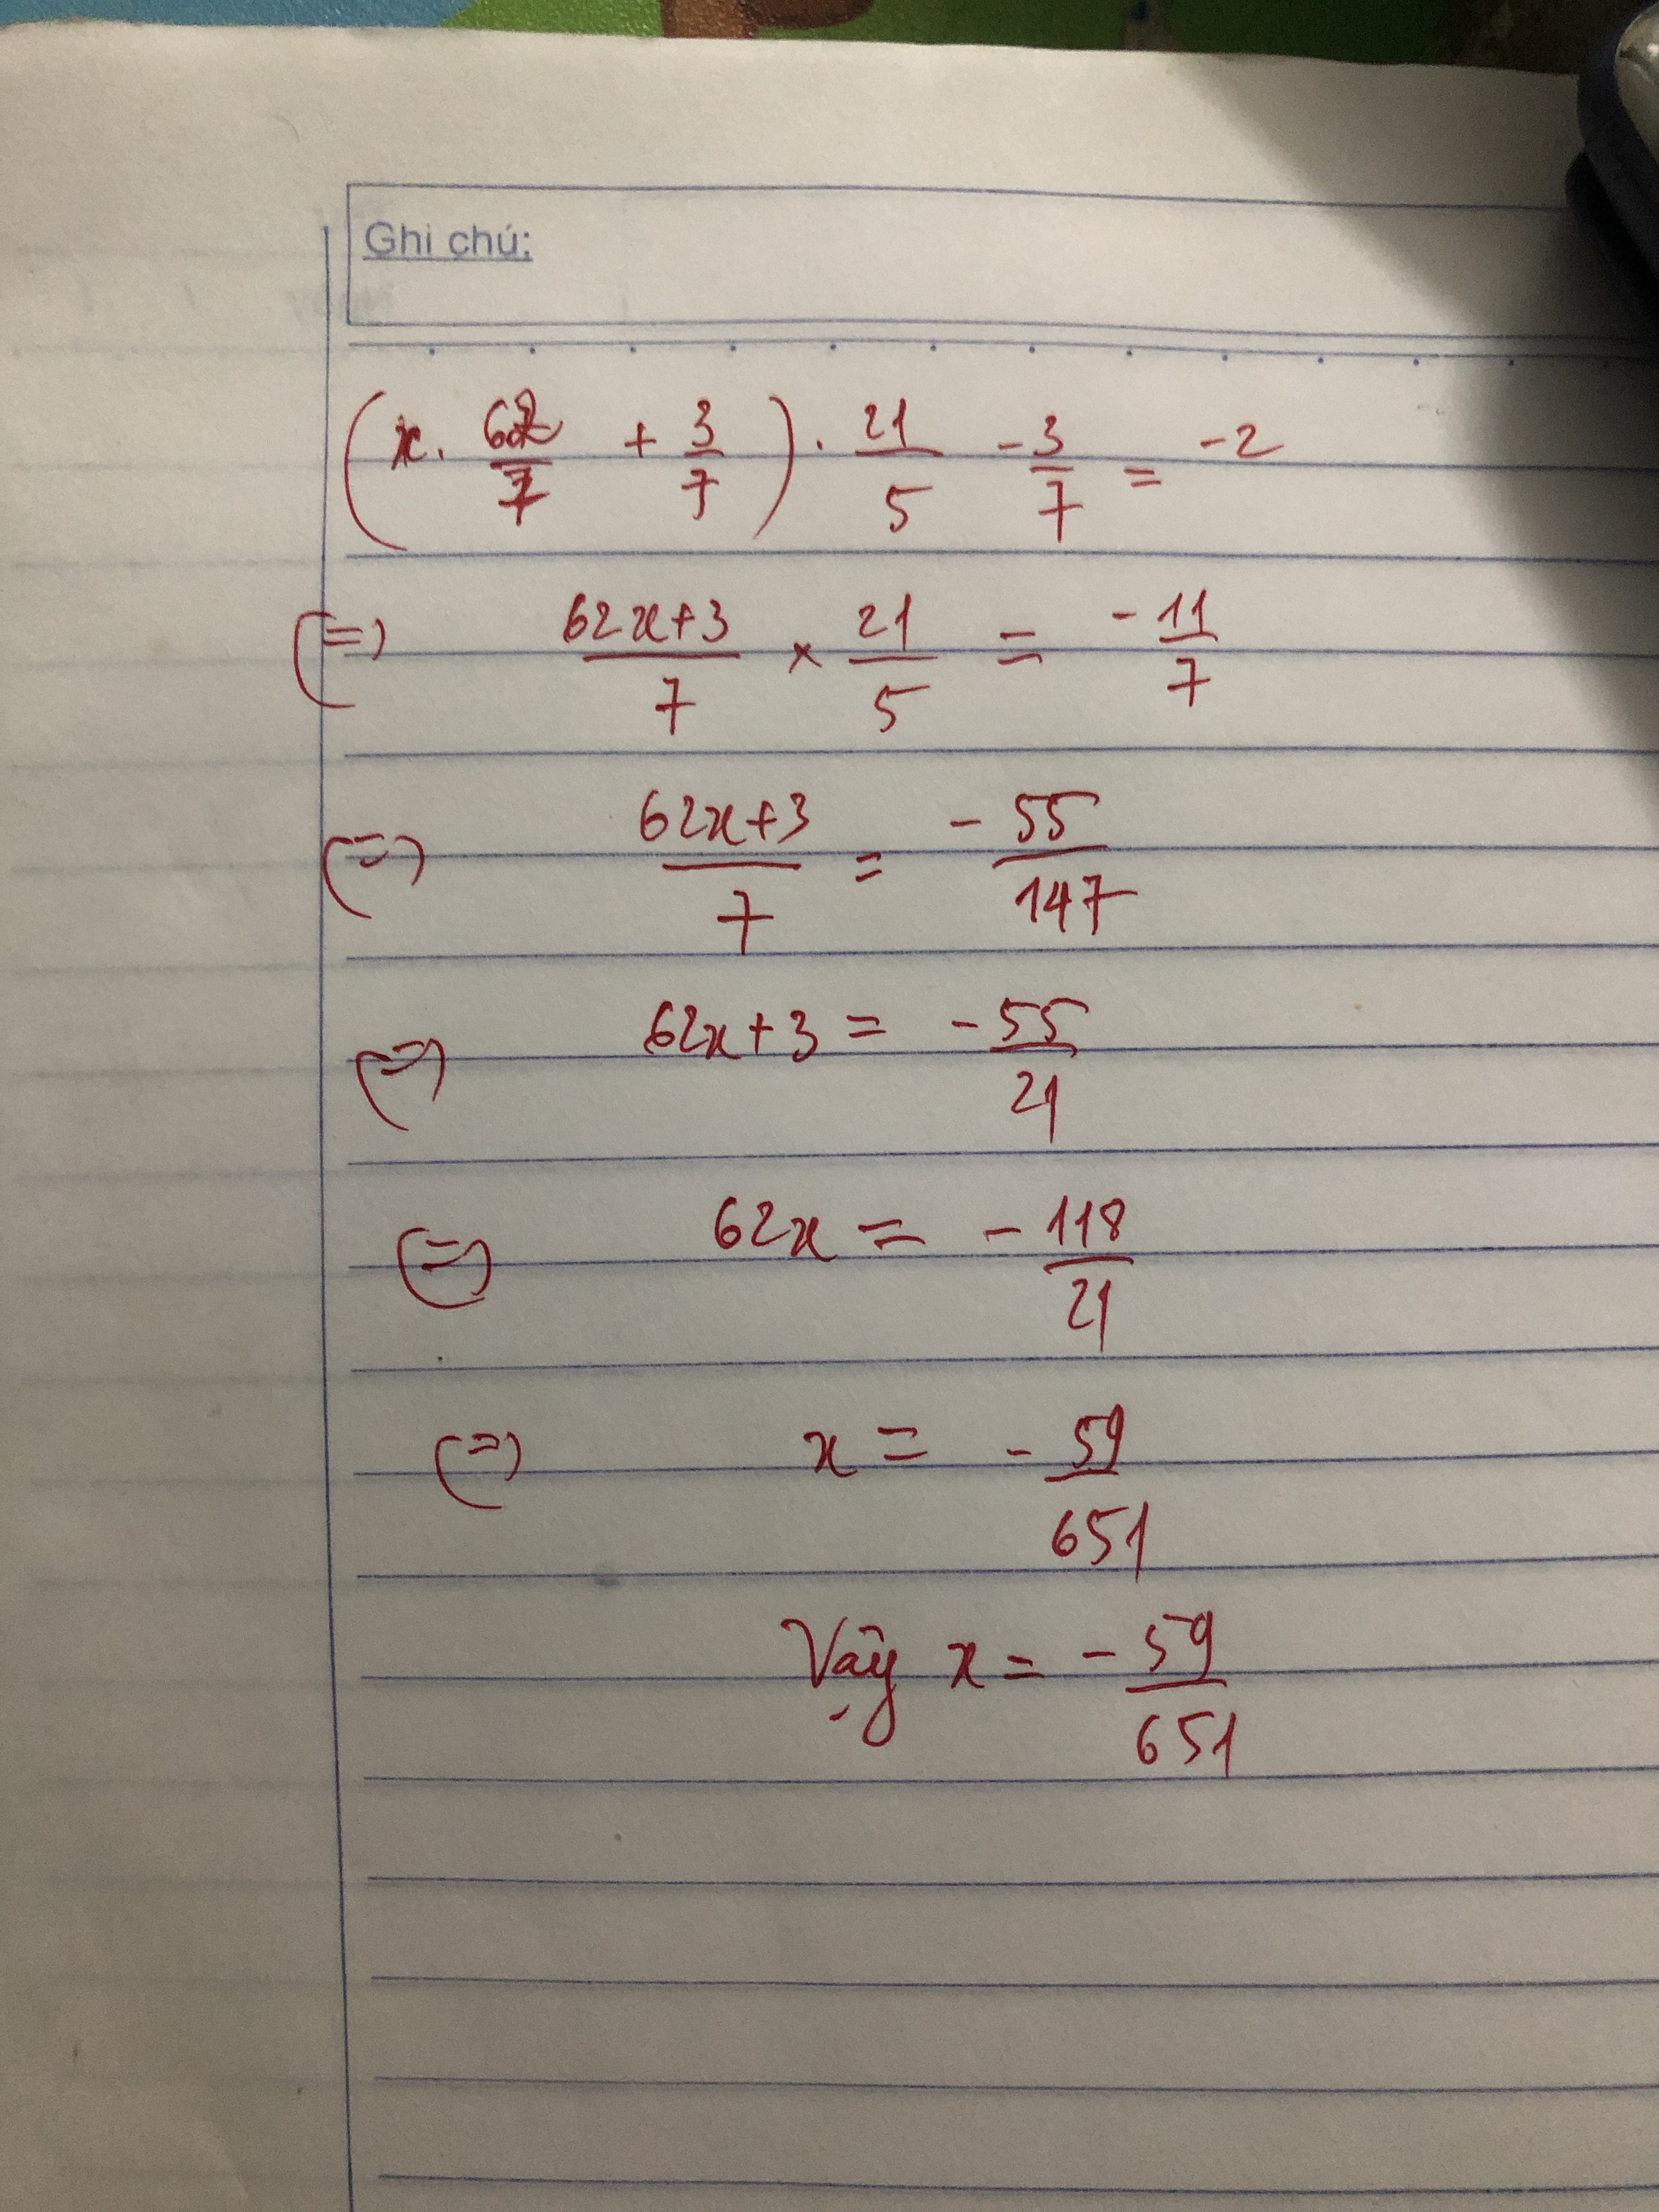 Ghi chú:
(x. 62/7 + 3/7) . 21/5 - 3/7 = -2
(=) 62x+3/7 × 21/5 = -11/7
(=) 62x+3/7 = -55/147
(=) 62x+3 = -55/21
(=) 62x = -118/21
(=) x = -59/651
Vậy x = -59/651